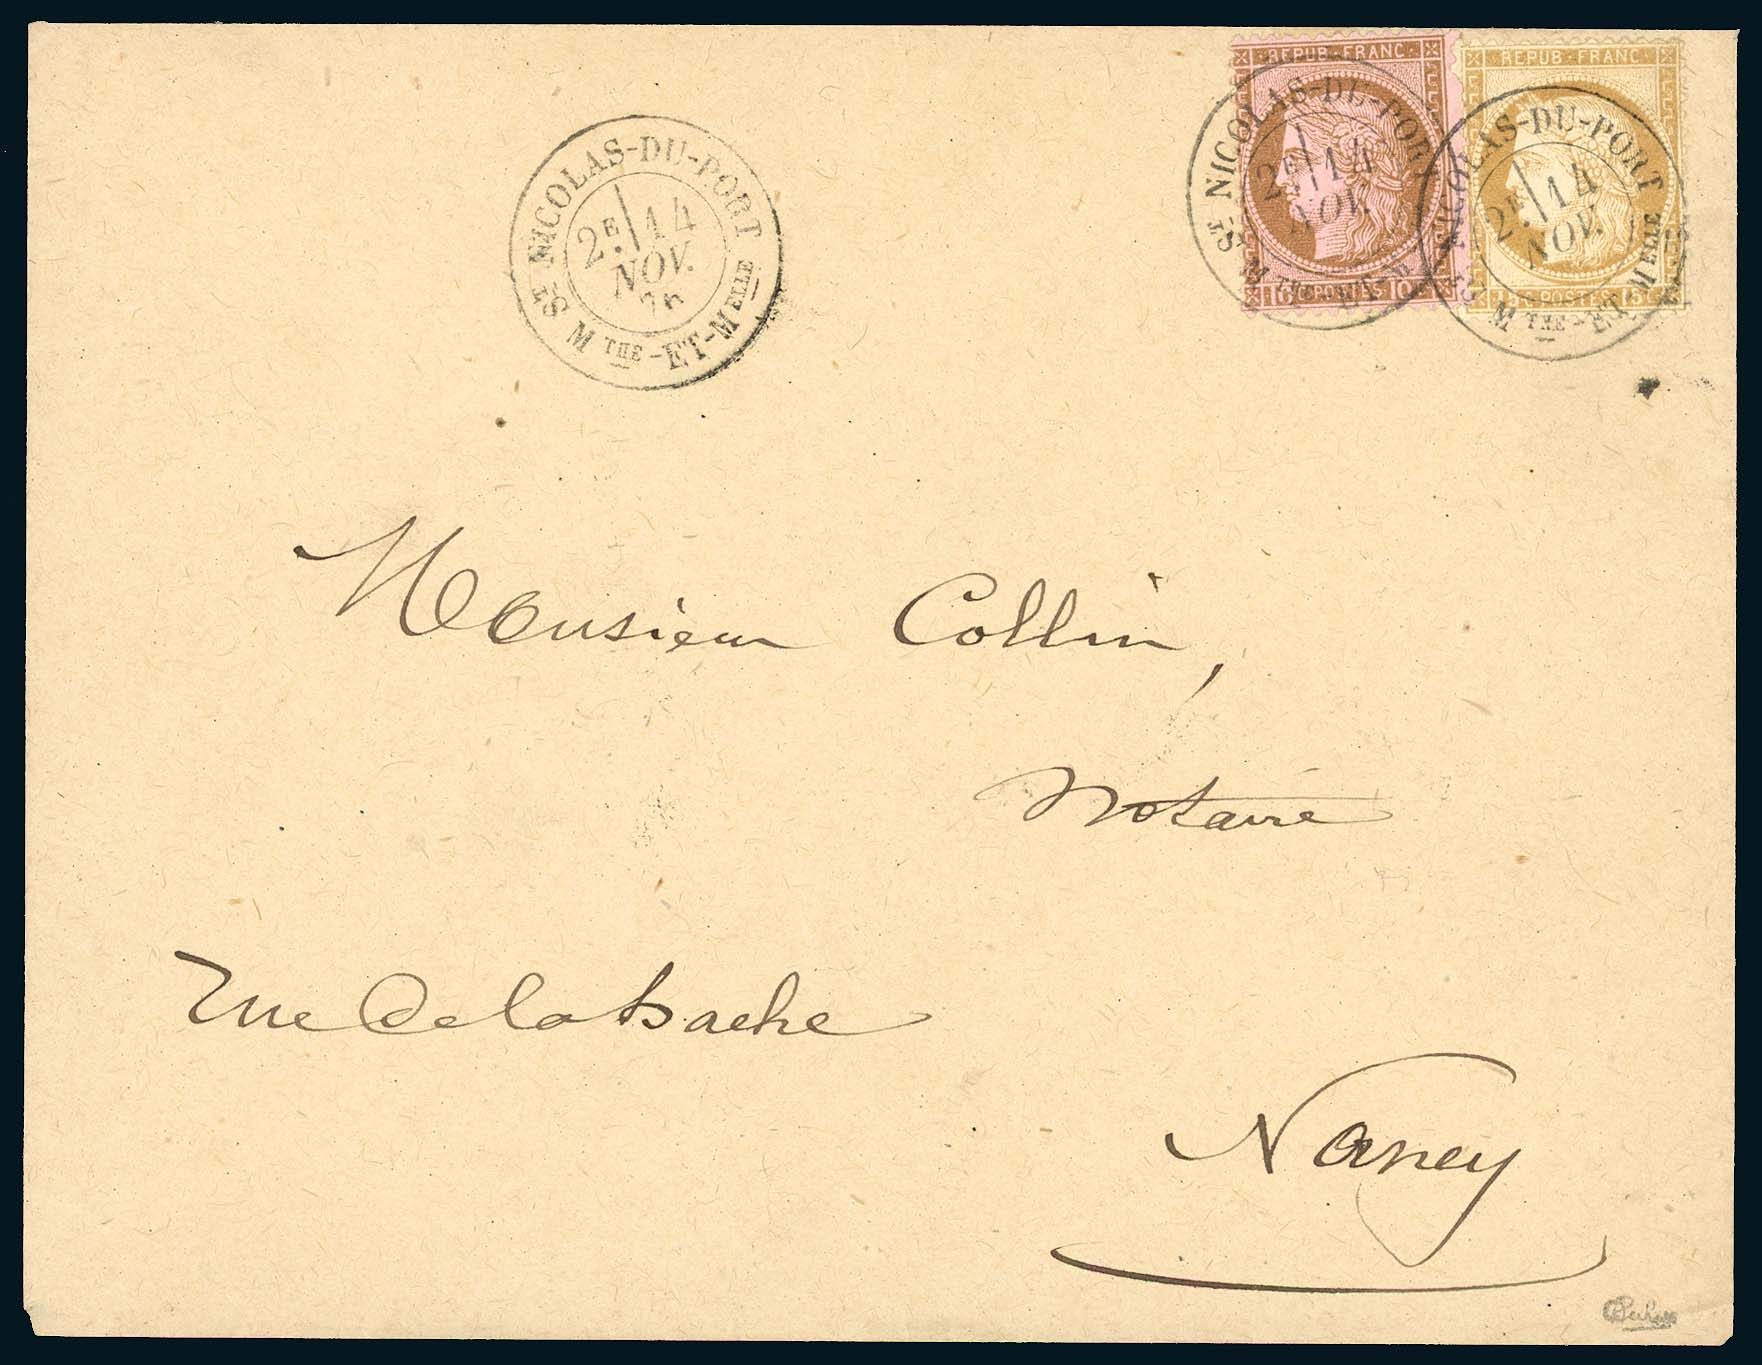 St NICOLAS-DU-PORT
2E 14
NOV.
76
MTHE-ET-MELLE
REPUB·FRANC·
St NICOLAS-DU-PORT
2E 14
NOV.
MTHE-ET-M
10 C·POSTES·10 C
REPUB·FRANC·
St NICOLAS-DU-PORT
2E 14
NOV.
MTHE-ET-MELLE
15 C·POSTES·15 C
Monsieur Collin,
Notaire
Rue de la
Nancy